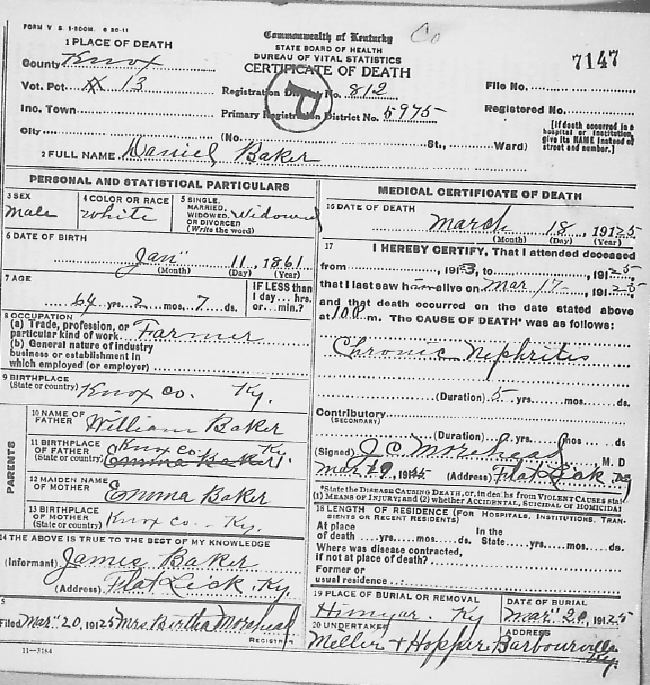 FORM V. S. 1-500M. 6-20-11
Commonwealth of Kentucky
Co
STATE BOARD OF HEALTH
BUREAU OF VITAL STATISTICS
CERTIFICATE OF DEATH
7147
1 PLACE OF DEATH
County Knox
Vot. Pct. 13
Inc. Town
City
Registration District No. 812
Primary Registration District No. 5975
File No.
Registered No.
(No. St., Ward)
[If death occurred in a hospital or institution, give its NAME instead of street and number.]
2 FULL NAME Daniel Baker
PERSONAL AND STATISTICAL PARTICULARS
3 SEX
Male
4 COLOR OR RACE
White
5 SINGLE, MARRIED, WIDOWED OR DIVORCED (Write the word)
Widowed
6 DATE OF BIRTH
Jan 11, 1861
(Month) (Day) (Year)
7 AGE
64 yrs. 2 mos. 7 ds.
IF LESS than 1 day... hrs. or... min.?
8 OCCUPATION
(a) Trade, profession, or particular kind of work Farmer
(b) General nature of industry business or establishment in which employed (or employer)
9 BIRTHPLACE
(State or country) Knox co. Ky.
PARENTS
10 NAME OF FATHER William Baker
11 BIRTHPLACE OF FATHER (State or country) Knox co. Ky.
Emma Baker
12 MAIDEN NAME OF MOTHER Emma Baker
13 BIRTHPLACE OF MOTHER (State or country) Knox co. Ky.
14 THE ABOVE IS TRUE TO THE BEST OF MY KNOWLEDGE
(Informant) James Baker
(Address) Flat Lick Ky.
Filed Mar. 20, 19125 Mrs. Birtha Morehead
REGISTRAR
11-3184
MEDICAL CERTIFICATE OF DEATH
16 DATE OF DEATH
March 18, 19125
(Month) (Day) (Year)
17 I HEREBY CERTIFY, That I attended deceased
from 1913, to 19125,
that I last saw him alive on Mar. 17, 19125,
and that death occurred on the date stated above
at 1 00 m. The CAUSE OF DEATH* was as follows:
Chronic Nephritis
(Duration) 5 yrs. mos. ds.
Contributory
(SECONDARY)
(Duration) yrs. mos. ds.
(Signed) J.C. Morehead M. D
Mar 19, 19125 (Address) Flat Lick Ky
*State the DISEASE CAUSING DEATH, or, in deaths from VIOLENT CAUSES state (1) MEANS OF INJURY; and (2) whether ACCIDENTAL, SUICIDAL OR HOMICIDAL
18 LENGTH OF RESIDENCE (FOR HOSPITALS, INSTITUTIONS, TRANSIENTS OR RECENT RESIDENTS)
At place of death yrs. mos. ds. In the State yrs. mos. ds.
Where was disease contracted, if not at place of death?
Former or usual residence
19 PLACE OF BURIAL OR REMOVAL
Himyar Ky
DATE OF BURIAL
Mar. 20, 19125
20 UNDERTAKER
Meller & Hopper
ADDRESS
Barbourville Ky.